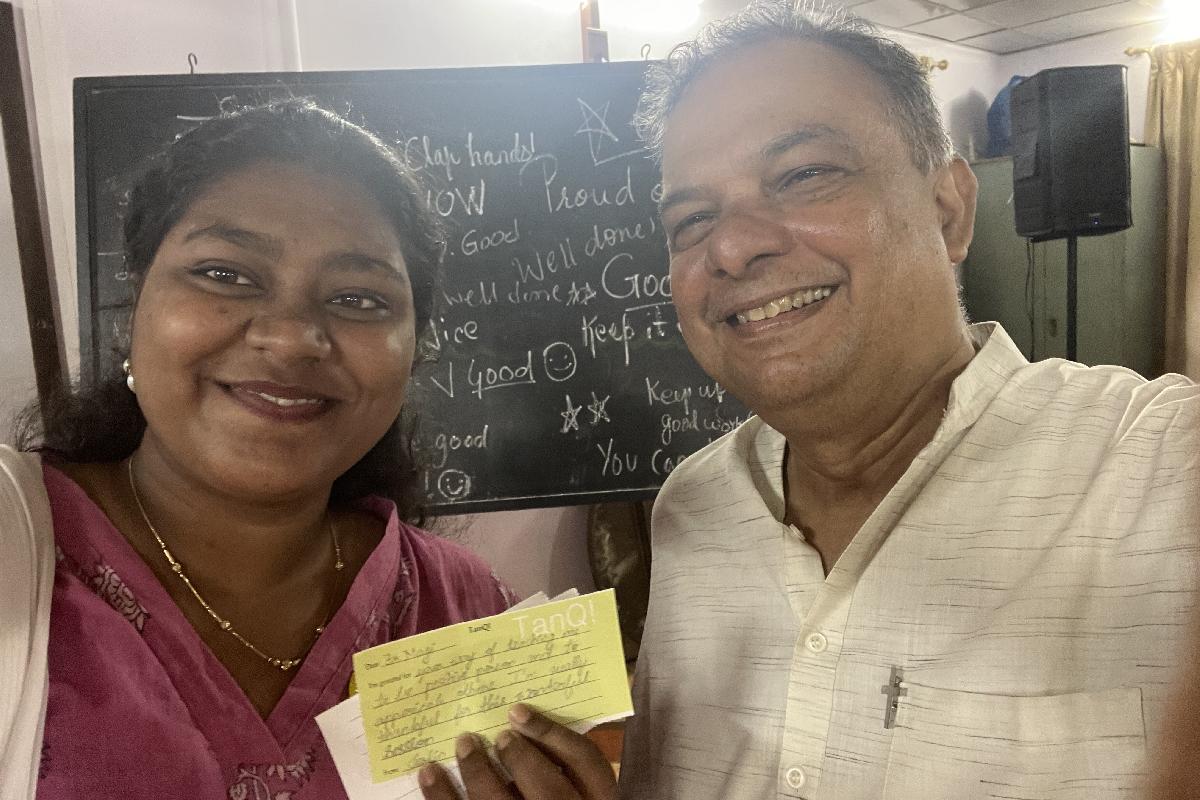 Clap hands!
WOW
Proud
Good
Well done!
well done
Good
Nice
Keep it
V Good
Keep up
good work
good
You can
TanQ!
TanQ!
Dear Fr Magi
I'm grateful for your way of teaching me
to be positive person and to
appreciate others. I'm really
thankful for this wonderful
Session
From